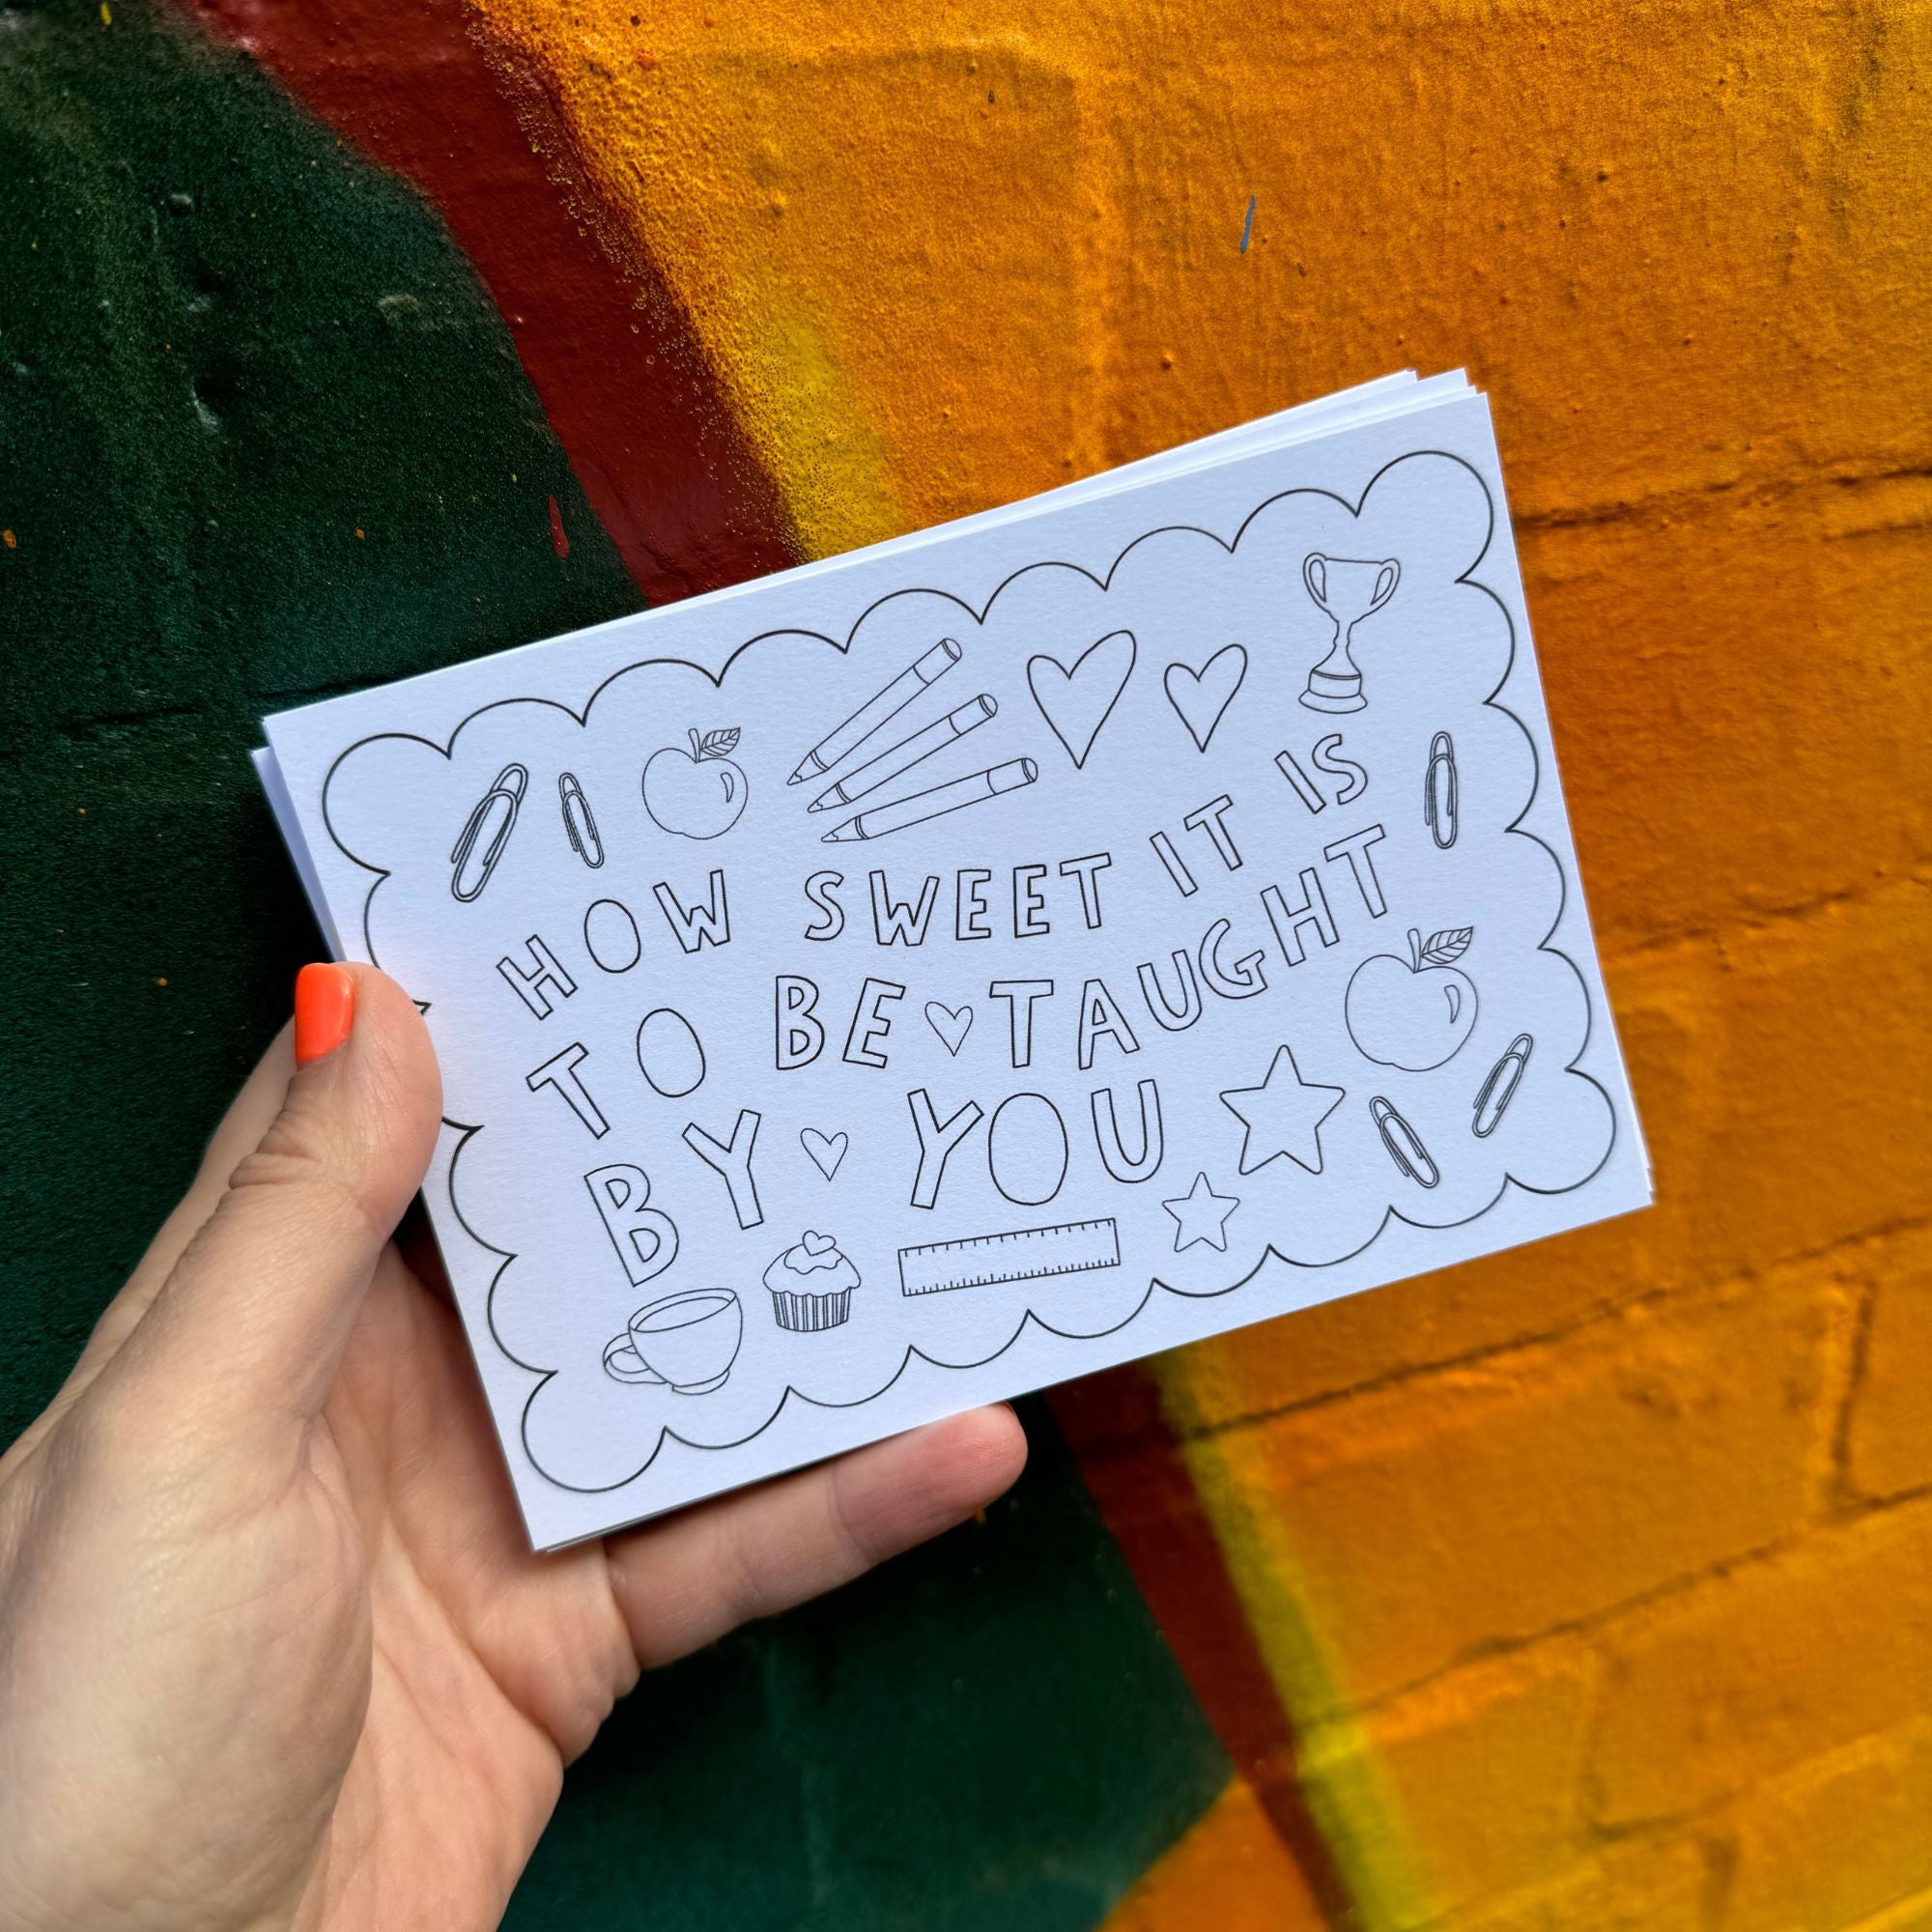 HOW SWEET IT IS
TO BE TAUGHT
BY YOU